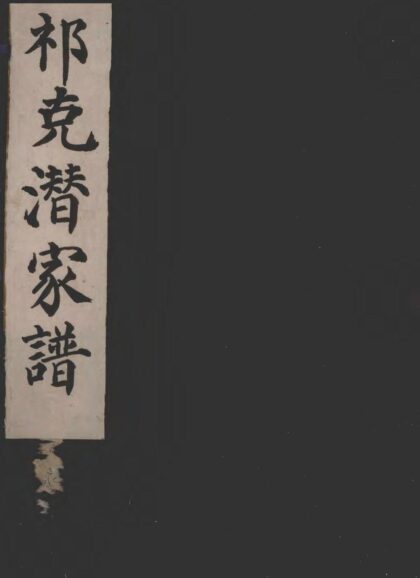 祁克潛家譜